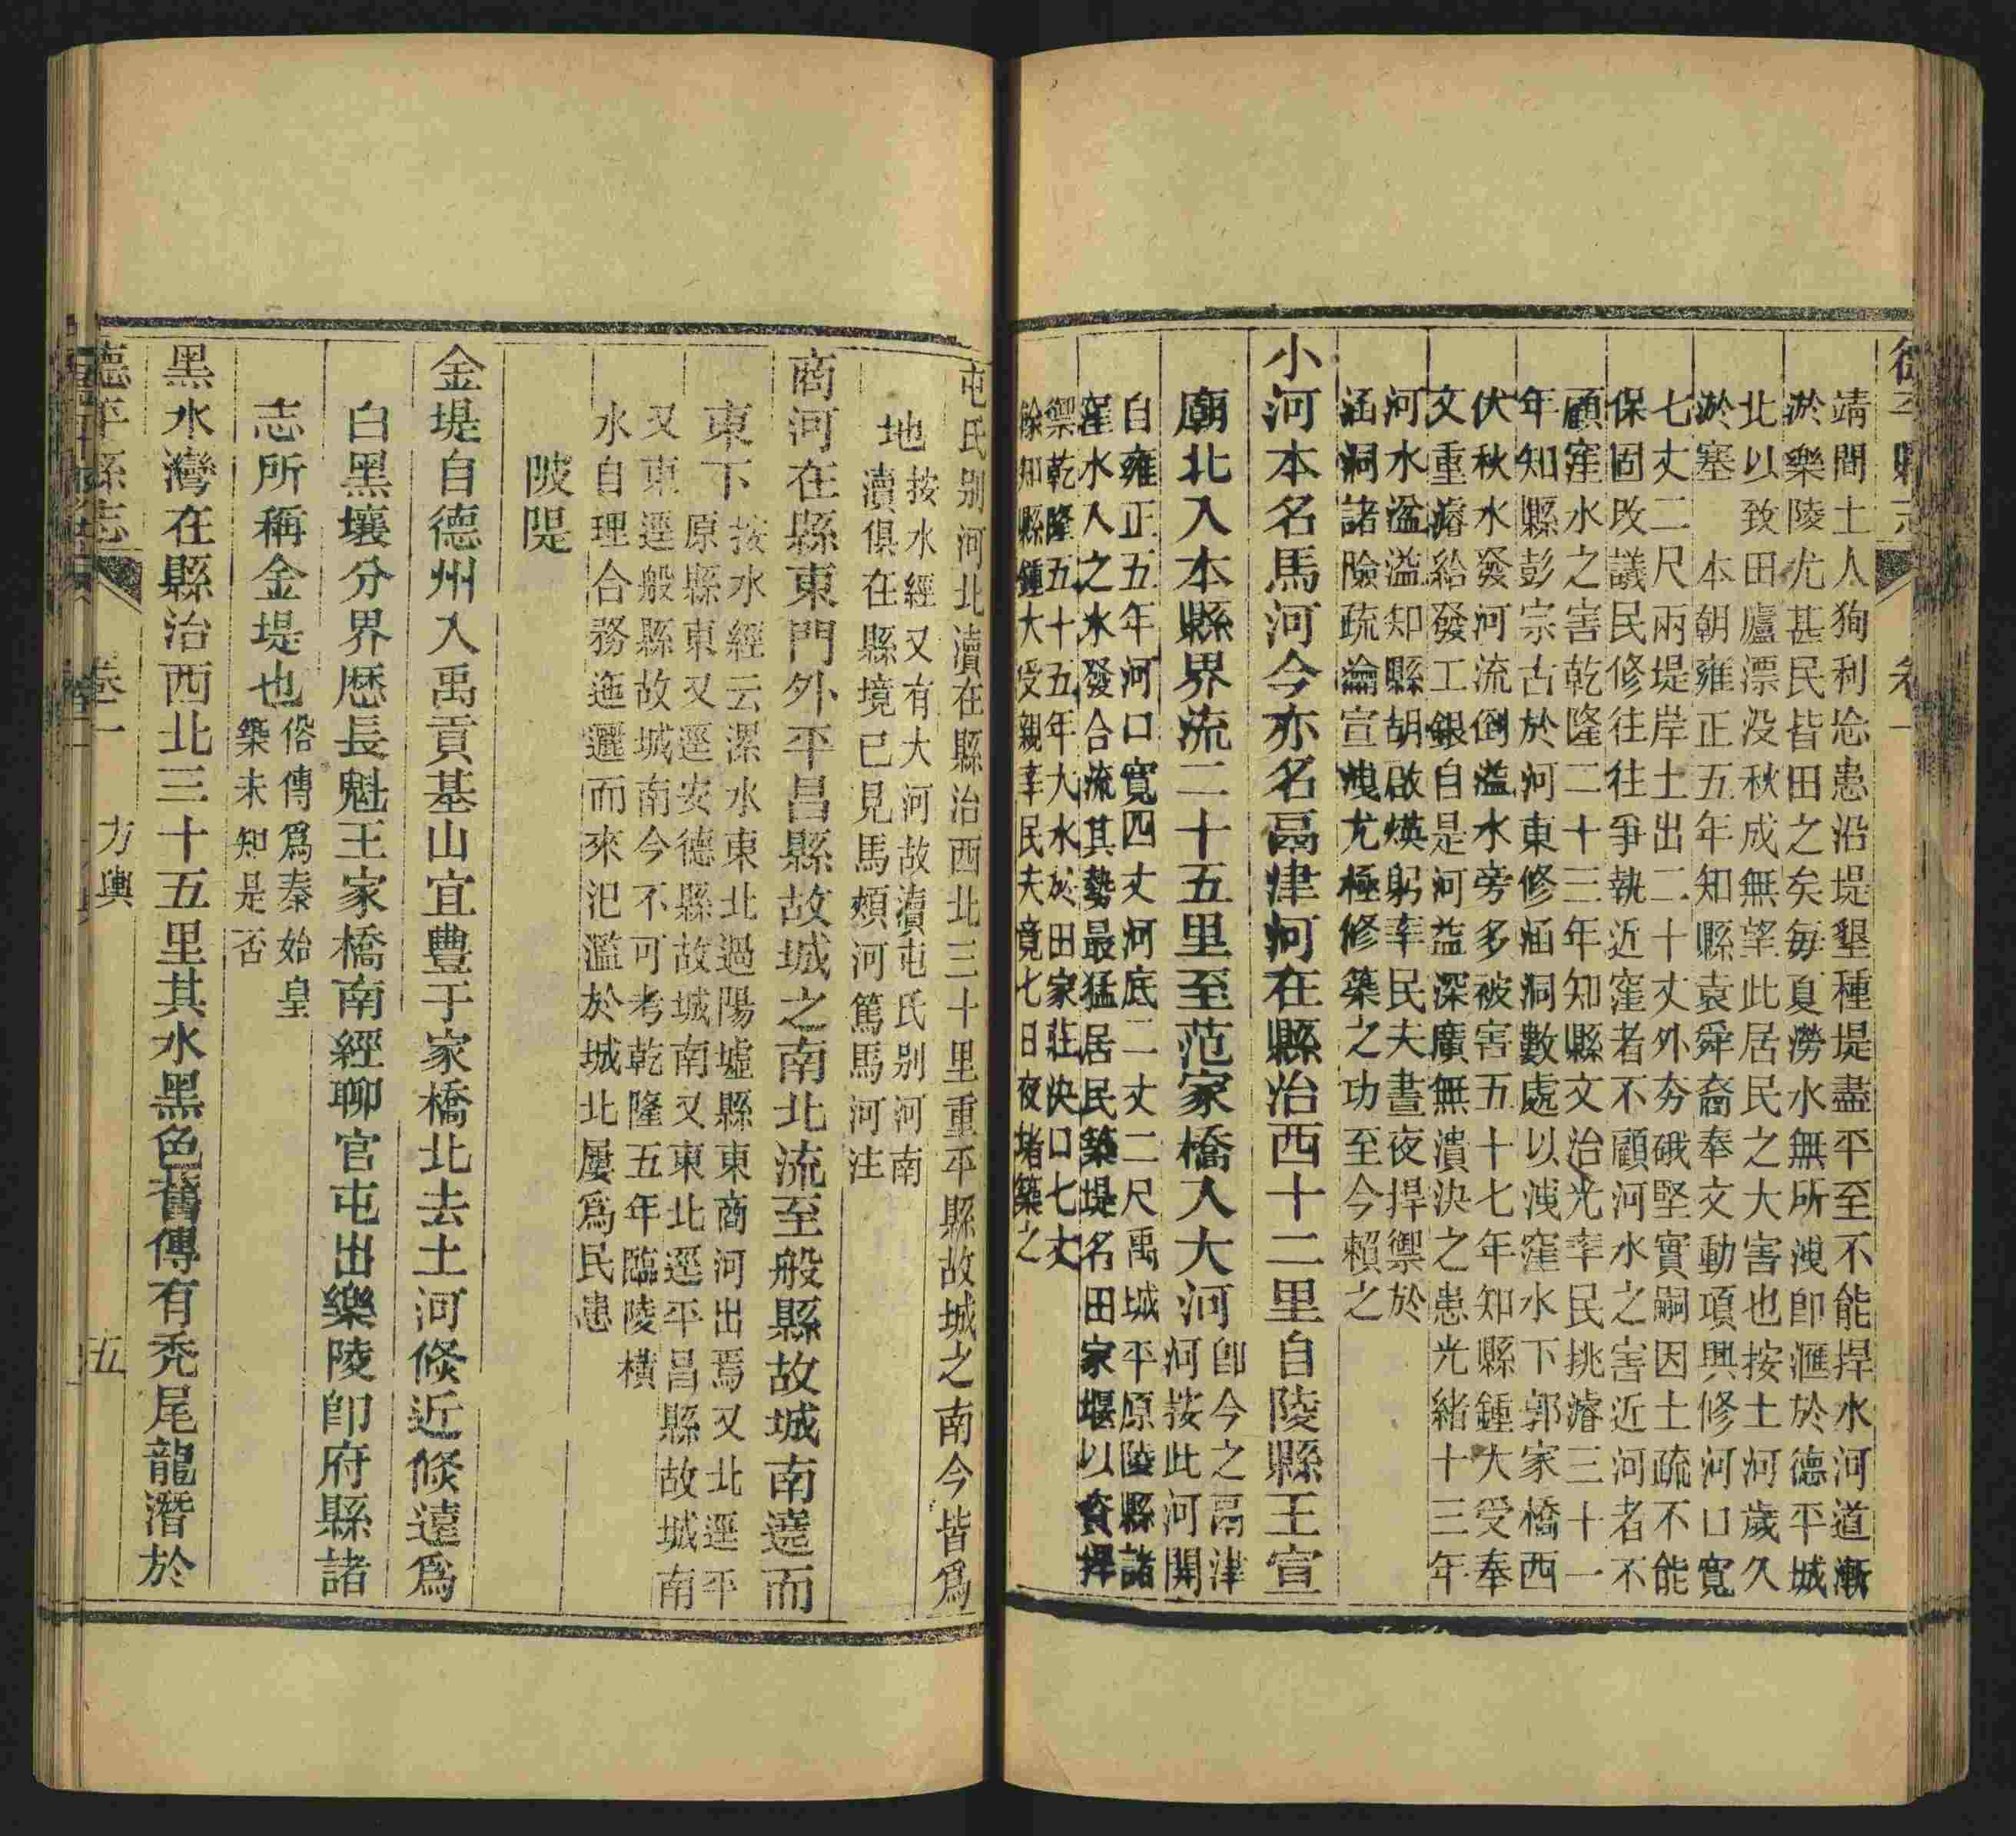 德平縣志 卷一
靖間土人狥利忿患沿堤墾種堤盡平至不能捍水河道漸
淤樂陵尤甚民皆田之矣每夏澇水無所洩卽滙於德平城
北以致田廬漂没秋成無望此居民之大害也按土河歲久
淤塞 本朝雍正五年知縣袁舜裔奉文動項興修河口寬
七丈二尺兩堤岸土出二十丈外夯硪堅實嗣因土疏不能
保固改議民修往往爭執近窪者不顧河水之害近河者不
顧窪水之害乾隆二十三年知縣文治光率民挑濬三十一
年知縣彭宗古於河東修涵洞數處以洩窪水下郭家橋西
伏秋水發河流倒溢水旁多被害五十七年知縣鍾大受奉
文重濬給發工銀自是河益深廣無潰決之患光緒十三年
河水溢溢知縣胡啟煐躬率民夫晝夜捍禦於
涵洞諸險疏瀹宣洩尤極修築之功至今賴之
小河本名馬河今亦名鬲津河在縣治西十二里自陵縣王宣
廟北入本縣界流二十五里至范家橋入大河
卽今之鬲津
河按此河開
自雍正五年河口寬四丈河底二丈二尺禹城平原陵縣諸
窪水入之水發合流其勢最猛居民築堤名田家堰以資捍
禦乾隆五十五年大水於田家莊決口七丈
餘知縣鍾大受親率民夫竟七日夜堵築之
屯氏别河北瀆在縣治西北三十里重平縣故城之南今皆爲
地
按水經又有大河故瀆屯氏别河南
瀆俱在縣境已見馬頰河篤馬河注
商河在縣東門外平昌縣故城之南北流至般縣故城南遶而
東下
按水經云漯水東北過陽墟縣東商河出焉又北逕平
原縣東又逕安德縣故城南又東北逕平昌縣故城南
又東逕般縣故城南今不可考乾隆五年臨陵橫
水自理合務迤邐而來氾濫於城北屢爲民患
陂隄
金堤自德州入禹貢基山宜豐于家橋北去土河倐近倐遠爲
白黑壤分界歷長魁王家橋南經聊官屯出樂陵卽府縣諸
志所稱金堤也
俗傳爲秦始皇
築未知是否
黑水灣在縣治西北三十五里其水黑色舊傳有禿尾龍潛於
德平縣志 卷一 方輿 五